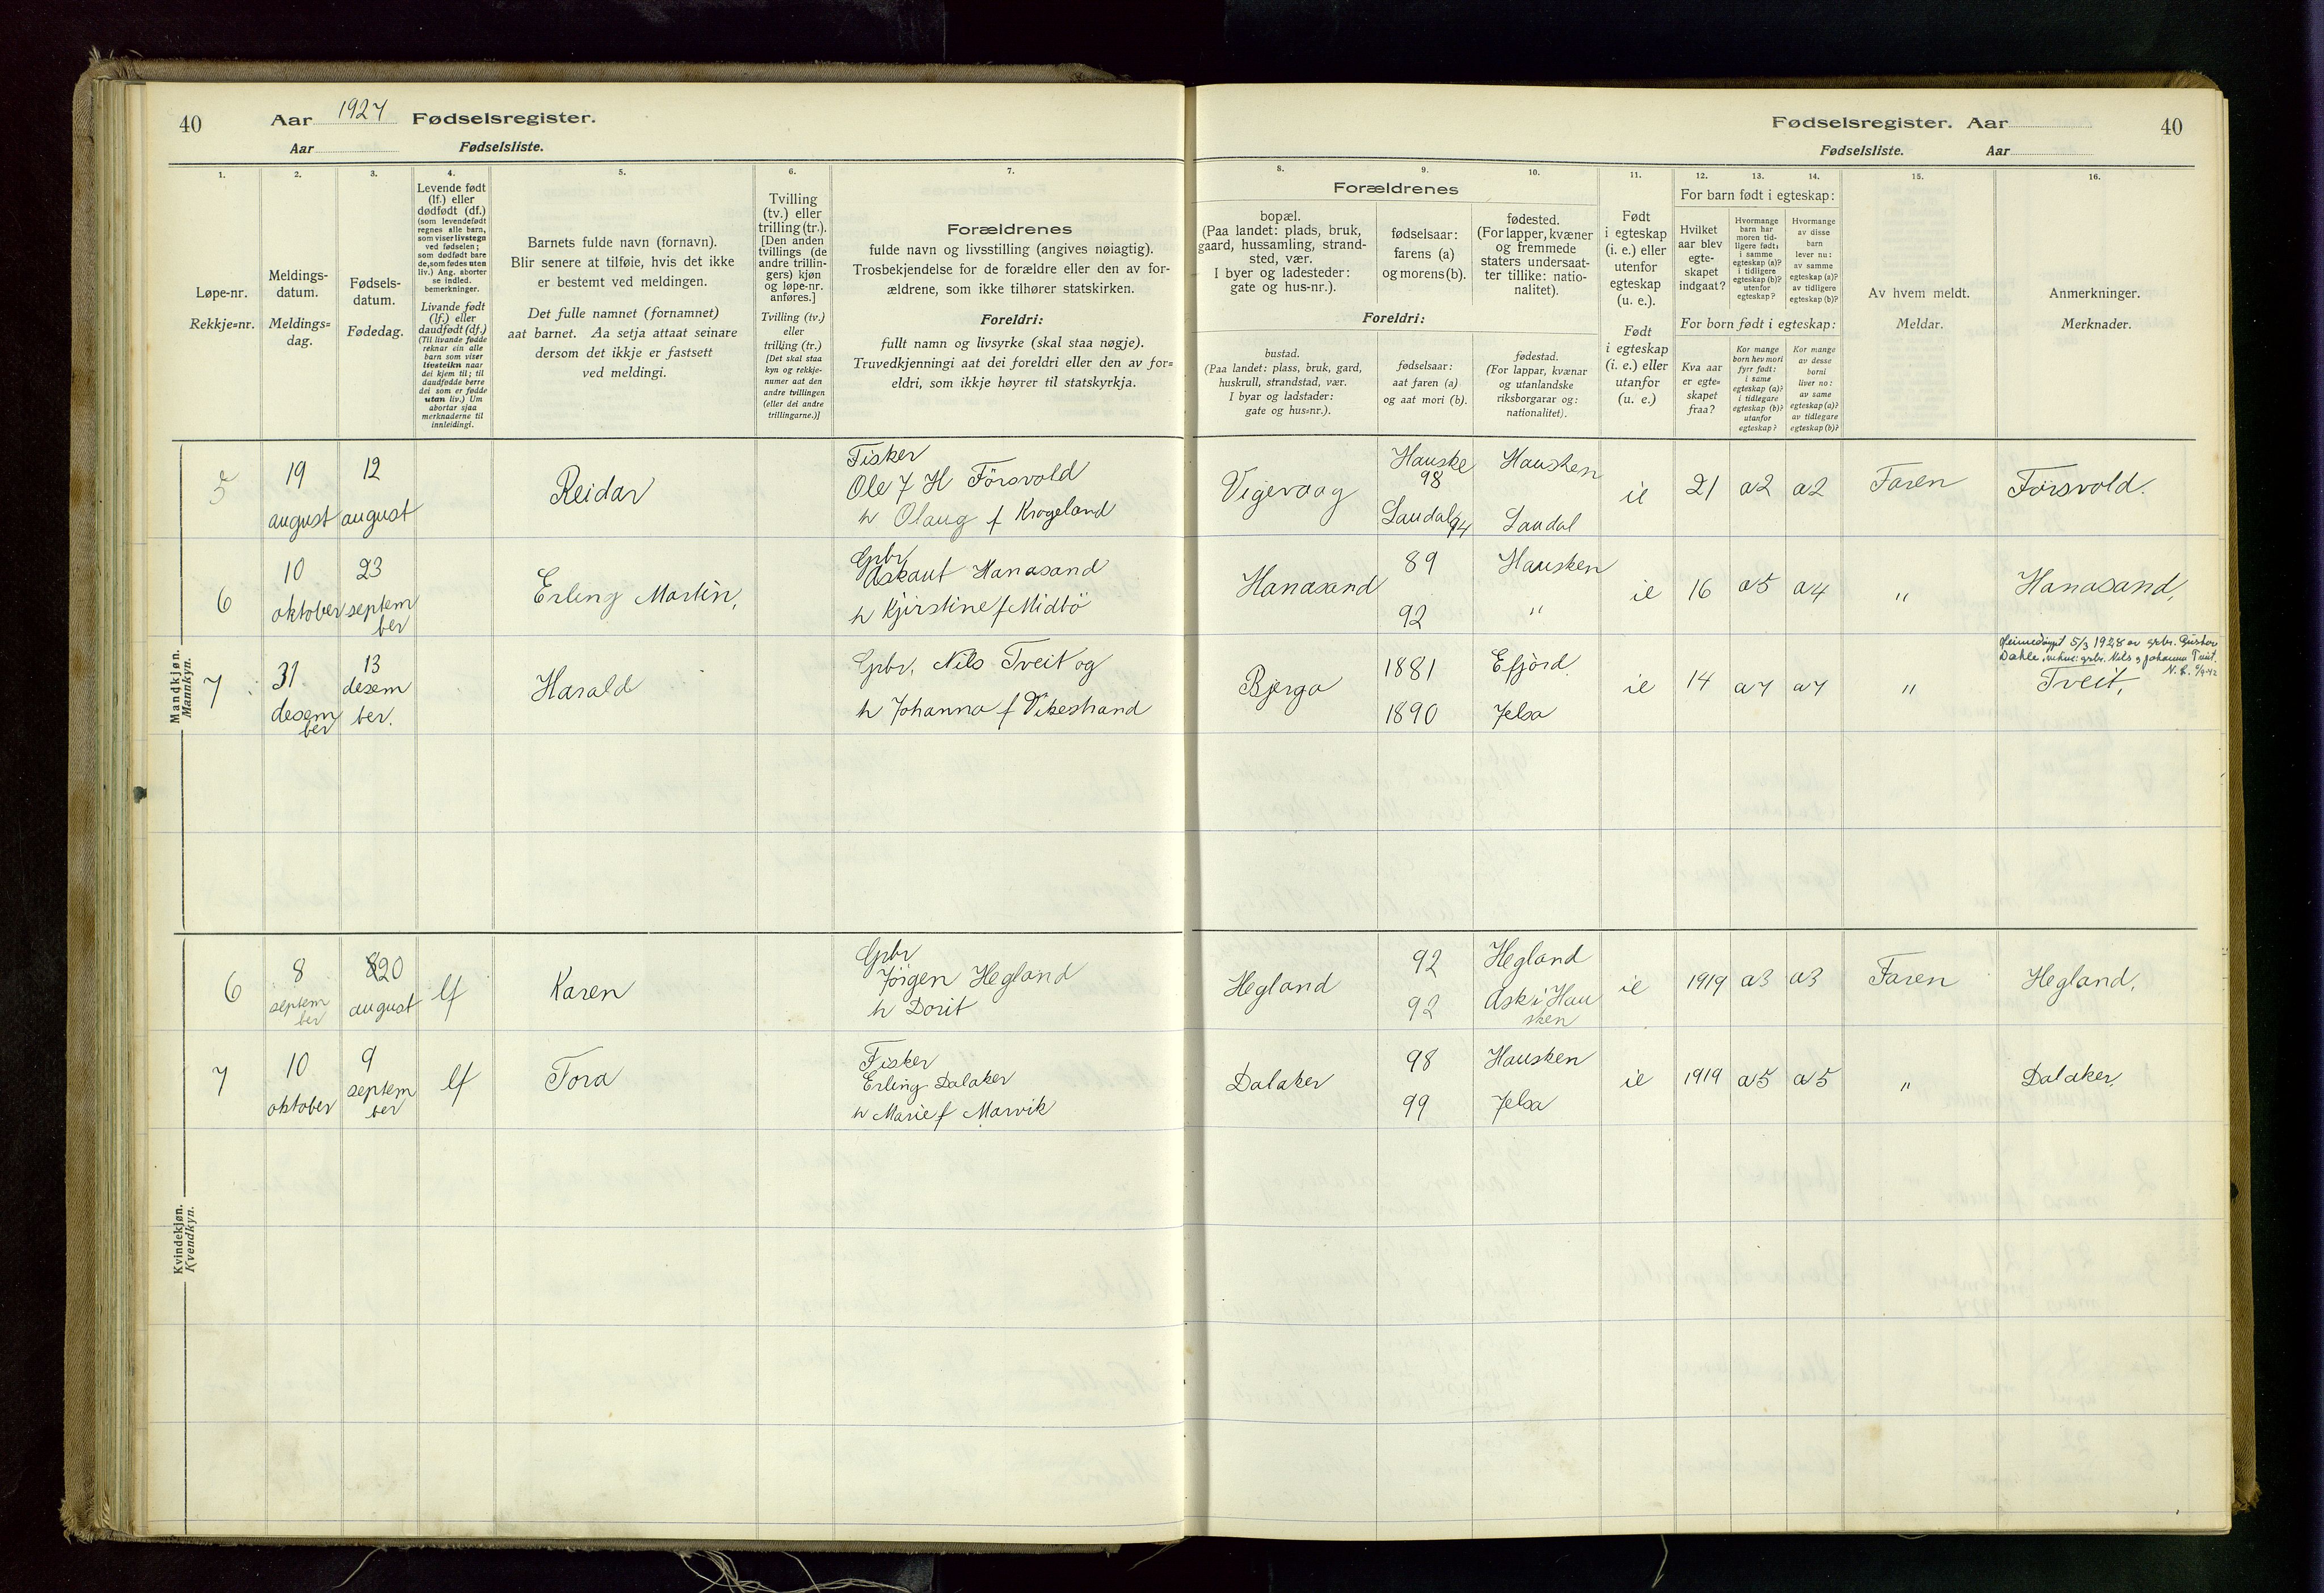 40 Aar 1927 Fødselsregister.
Aar Fødselsliste.
Fødselsregister. Aar 40
Fødselsliste. Aar
1. 2. 3. 4. 5. 6. 7.
Løpe-nr.
Rekkje=nr.
Meldings-
datum.
Meldings=
dag.
Fødsels-
datum.
Fødedag.
Levende født
(lf.) eller
dødfødt (df.)
(som levendefødt
regnes alle barn,
som viser livstegn
ved fødselen;
som dødfødt bare
de, som fødes uten
liv.) Ang. aborter
se indled.
bemerkninger.
Livande født
(lf.) eller
daudfødt (df.)
(Til livande fødde
reknar ein alle
barn som viser
livsteikn naar
dei kjem til; til
daudfødde berre
dei som er fødde
utan liv.) Um
abortar sjaa
merknaderne til
innleidingi.
Barnets fulde navn (fornavn).
Blir senere at tilføie, hvis det ikke
er bestemt ved meldingen.
Det fulle namnet (fornamnet)
aat barnet. Aa setja attaat seinare
dersom det ikkje er fastsett
ved meldingi.
Tvilling
(tv.) eller
trilling (tr.).
[Den anden
tvillings (de
andre trillin-
gers) kjøn
og løpe-nr.
anføres.]
Tvilling (tv.)
eller
trilling (tr.)
[Det skal staa
kyn og rekkje-
numer aat den
andre tvillingen
(eller dei andre
trillingarne.)]
Forældrenes
fulde navn og livsstilling (angives nøiagtig).
Trosbekjendelse for de forældre eller den av for-
ældrene, som ikke tilhører statskirken.
Foreldri:
fullt namn og livsyrke (skal staa nøgje).
Truvedkjenningi aat dei foreldri eller den av for=
eldri, som ikkje høyrer til statskyrkja.
8. 9. 10. 11. 12. 13. 14. 15. 16.
Forældrenes
bopæl.
(Paa landet: plads, bruk,
gaard, hussamling, strand-
sted, vær.
I byer og ladesteder:
gate og hus-nr.).
fødselsaar:
farens (a)
og morens (b).
fødested.
(For lapper, kvæner
og fremmede
staters undersaat-
ter tillike: natio-
nalitet).
Foreldri:
bustad.
(Paa landet: plass, bruk, gard,
huskrull, strandstad, vær.
I byar og ladstader:
gate og hus=nr.).
fødselsaar:
aat faren (a)
og aat mori (b).
fødestad.
(For lappar, kvænar
og utanlandske
riksborgarar og:
nationalitet).
Født
i egteskap
(i. e.) eller
utenfor
egteskap
(u. e.).
Født
i egteskap
(i. e.) eller
utanfor
(u. e.)
For barn født i egteskap:
Hvilket
aar blev
egte-
skapet
indgaat?
Hvormange
barn har
moren tid-
ligere født:
i samme
egteskap (a)?
i tidligere
egteskap (b)?
utenfor
egteskap?
Hvormange
av disse
barn
lever nu:
av samme
egteskap (a)?
av tidligere
egteskap (b)?
For born født i egteskap:
Kva aar
er egte=
skapet
fraa?
Kor mange
born hev mori
fyrr født:
i same
egteskap (a)?
i tidlegare
egteskap (b)?
utanfor
egteskap?
Kor mange
av desse
borni
liver no:
av same
egteskap (a)?
av tidlegare
egteskap (b)?
Av hvem meldt.
Meldar.
Anmerkninger.
Merknader.
Mandkjøn.
Mannkyn.
5 19 august 12 august Reidar
Fisker
Ole J H Försvold
h Olaug f Krageland
Vigevaag Hauske 98 Hausken ie 21 a2 a2 Faren Försvold.
Laudal 94 Laudal
6 10 oktober 23 september Erling Martin,
Gpbr
Askaut Hanasand
h Kjirstine f Midtö
Hanasand 89 Hausken ie 16 a5 a4 " Hanasand,
92 "
7 31 desember 13 desember. Harald
Gpbr, Nils Tveit og
h Johanna f Vikestrand
Bjerga 1881 Efjörd. ie 14 a7 a7 " Tveit,
1890 Jelsa
Heimedöypt 5/3 1928 av grbr. Gustav
Dahle, grbr. Nils og Johanna Tveit.
Kvindekjøn.
Kvendkyn.
6 8 september 20 august lf Karen
Gpbr
Jörgen Hegland
h Dorit
Hegland 92 Hegland ie 1919 a3 a3 Faren Hegland,
92 Ask i Hausken
7 10 oktober 9 september lf Tora
Fisker
Erling Dalaker
h Marie f Marvik
Dalaker 98 Hausken ie 1919 a5 a5 " Dalaker,
99 Jelsa